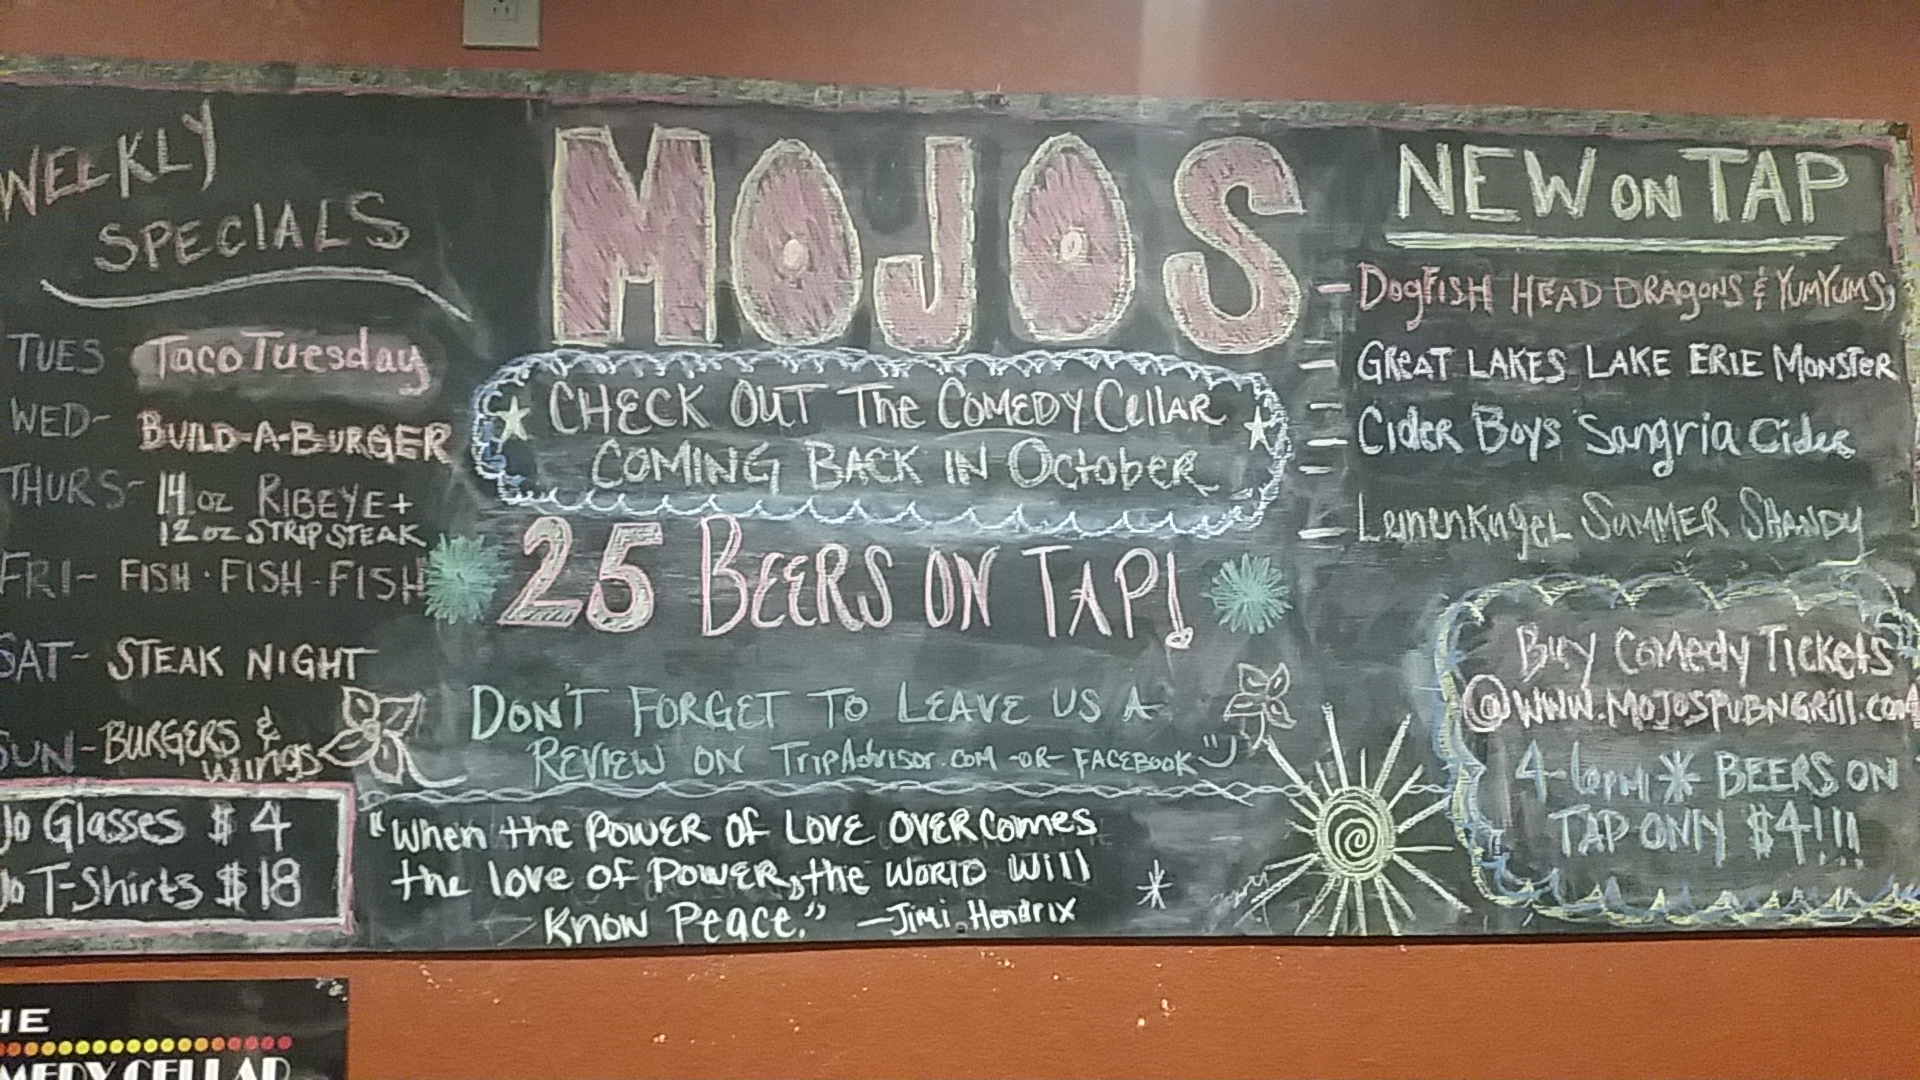 WEEKLY
SPECIALS
TUES Taco Tuesday
WED- BUILD-A-BURGER
THURS- 14 oz RIBEYE +
12 oz STRIP STEAK
FRI- FISH · FISH - FISH
SAT- STEAK NIGHT
SUN- BURGERS &
Wings
Jo Glasses $4
Jo T-Shirts $18
MOJOS
CHECK OUT The COMEDY Cellar
COMING BACK IN October
25 BEERS ON TAP!
DON'T FORGET TO LEAVE US A
REVIEW ON TripAdvisor.com -OR- FACEBOOK
"When the POWER OF LOVE OVERComes
the love of POWER, the WORLD Will
Know Peace." -Jimi Hendrix
NEW ON TAP
- DOGFISH HEAD DRAGONS & YUMYUMS,
- GREAT LAKES LAKE ERIE MONSTER
- Cider Boys Sangria Cider
- LeinenKugel SUMMER SHANDY
Buy Comedy Tickets
@WWW.MOJOSPUBNGRill.com
4-6pm * BEERS ON
TAP ONLY $4!!!
HE
MEDY CELLAR